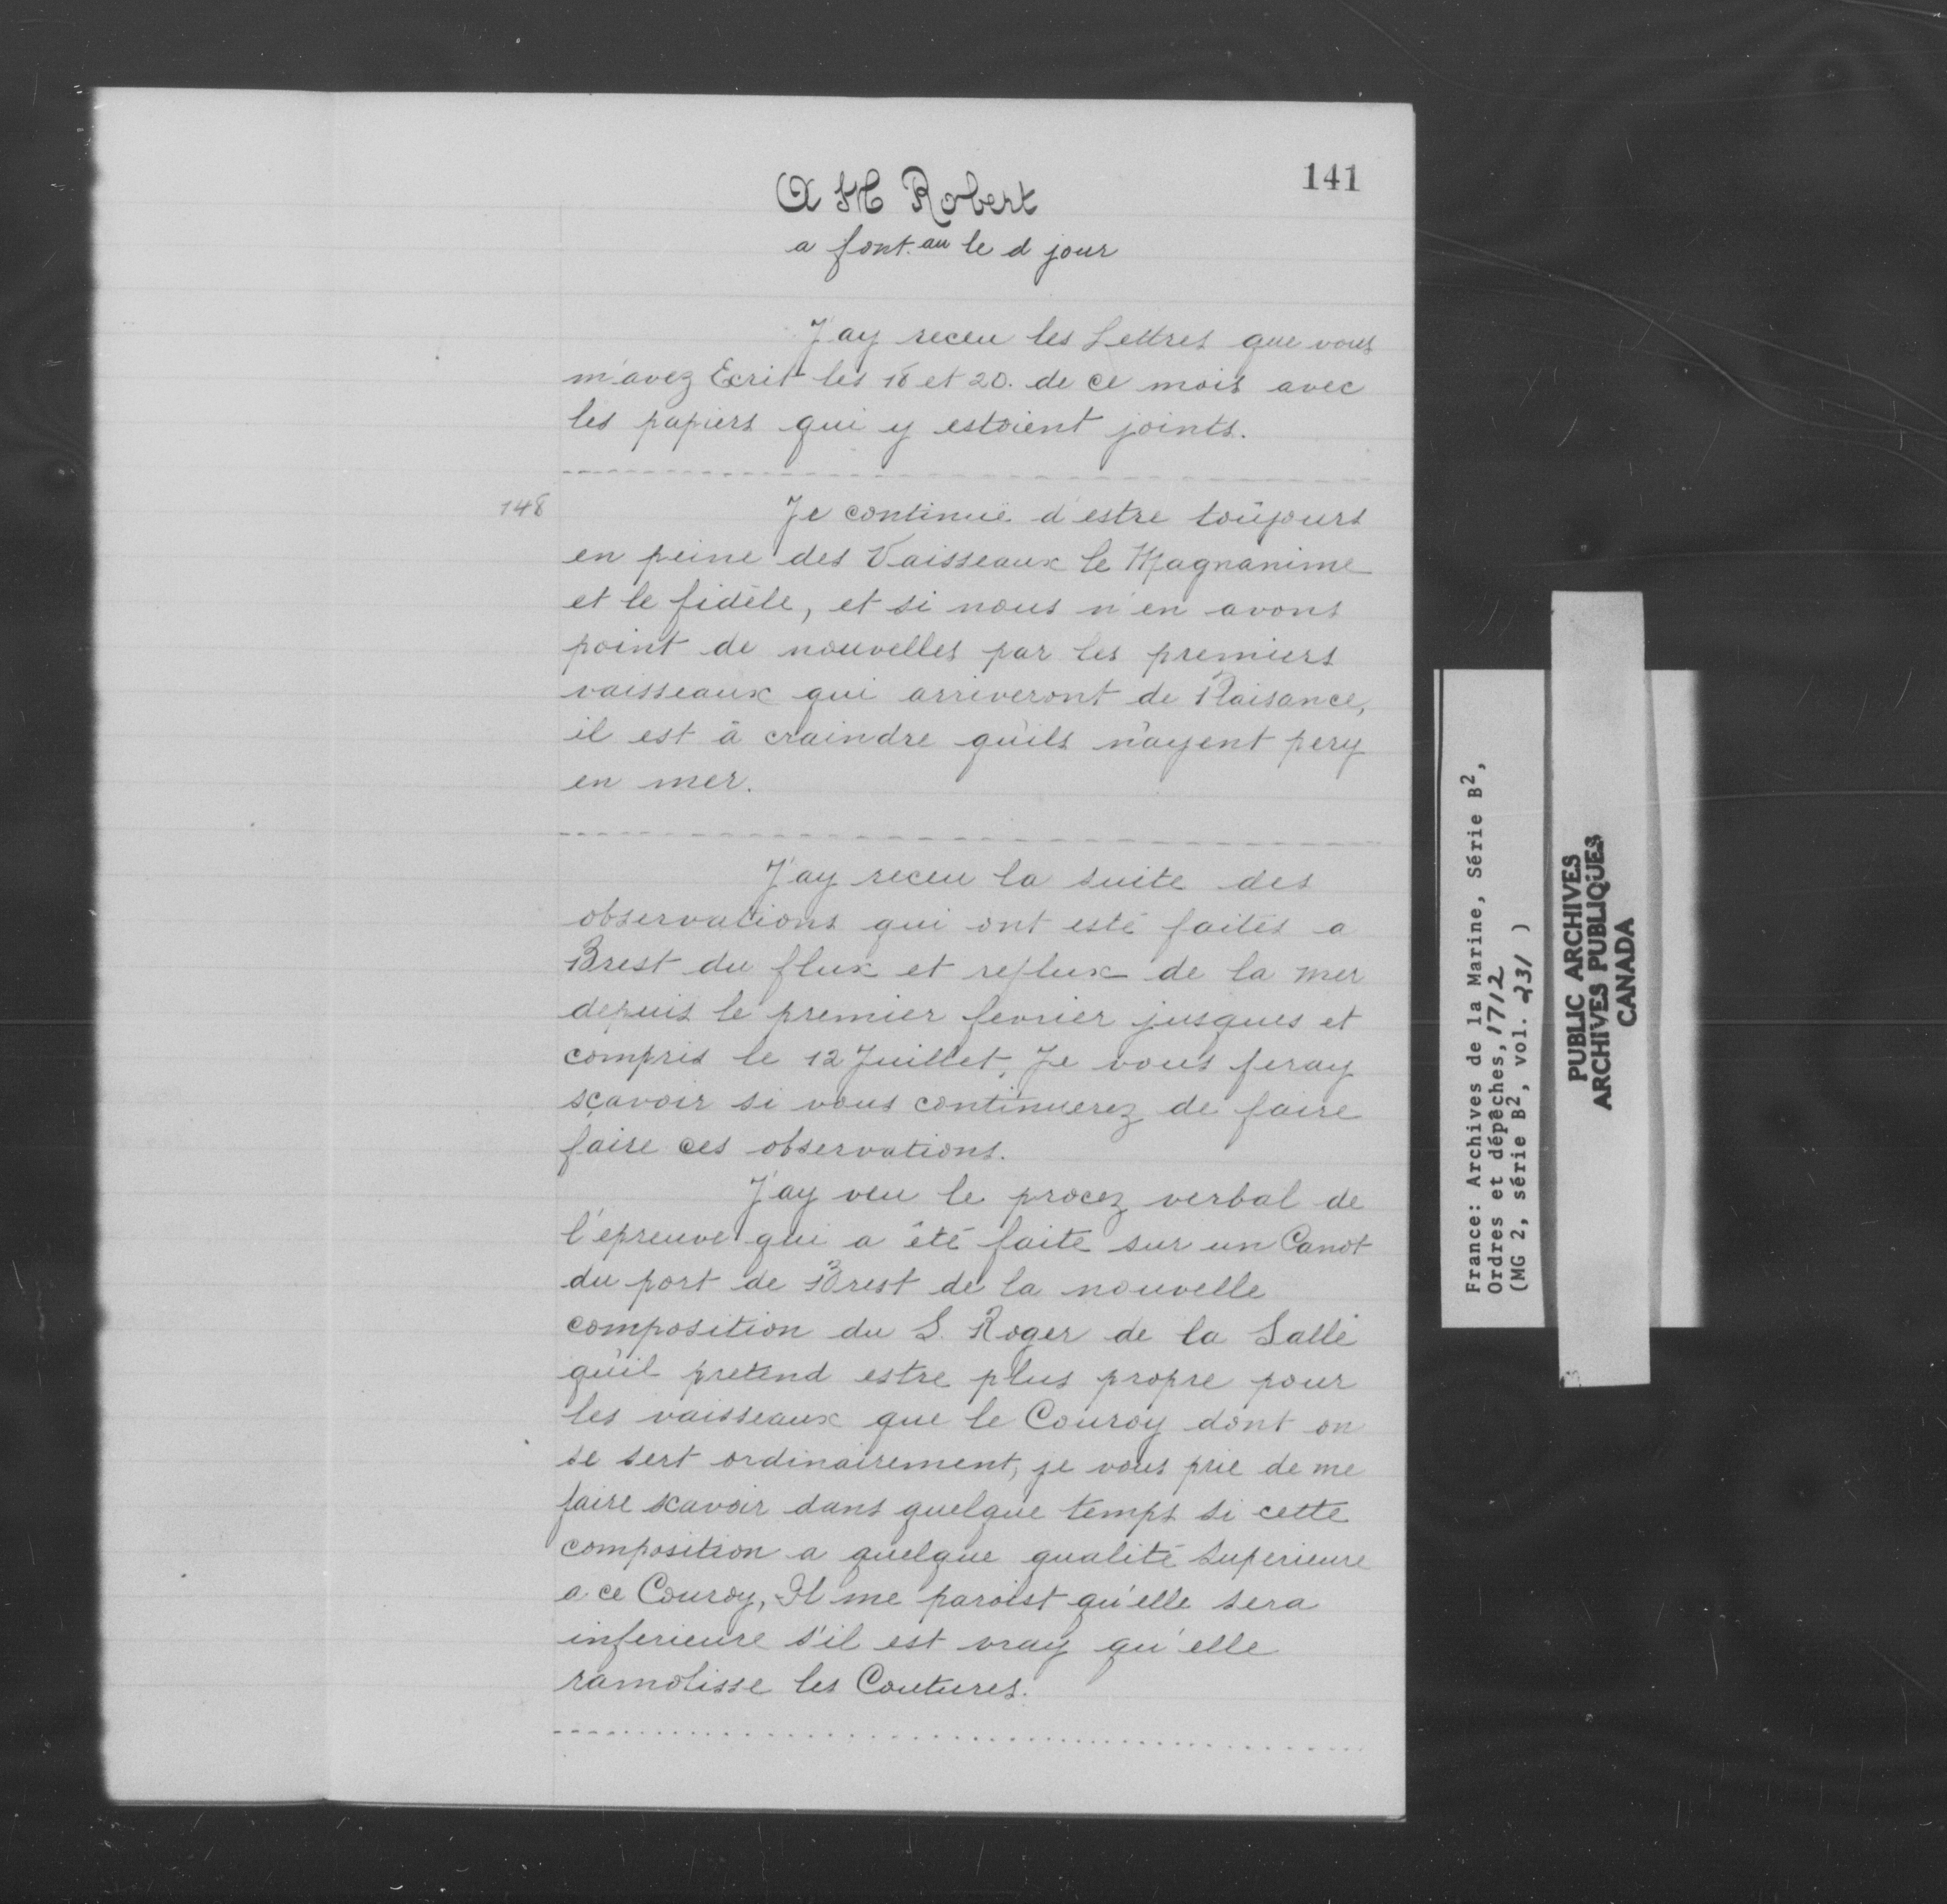 141
A M Robert
a font.au le d jour
J'ay receu les Lettres que vous
m'avez Ecrit les 18 et 20. de ce mois avec
les papiers qui y estoient joints.
148
Je continuë d'estre toûjours
en peine des Vaisseaux le Magnanime
et le fidèle, et si nous n'en avons
point de nouvelles par les premiers
vaisseaux qui arriveront de Plaisance,
il est à craindre qu'ils n'ayent pery
en mer.
J'ay receu la suite des
observations qui ont esté faites a
Brest du flux et reflux de la mer
depuis le premier fevrier jusques et
compris le 12 Juillet, Je vous feray
sçavoir si vous continuerez de faire
faire ces observations.
J'ay veu le procez verbal de
l'épreuve qui a été faite sur un Canot
du port de Brest de la nouvelle
composition du S. Roger de la Salle
qu'il pretend estre plus propre pour
les vaisseaux que le Couroy dont on
se sert ordinairement, je vous prie de me
faire scavoir dans quelque temps si cette
composition a quelque qualité superieure
a ce Couroy, Il me paroist qu'elle sera
inferieure s'il est vray qu'elle
ramolisse les Coutures.
France: Archives de la Marine, Série B2,
Ordres et dépêches, 1712
(MG 2, série B2, vol. 231 )
PUBLIC ARCHIVES
ARCHIVES PUBLIQUES
CANADA